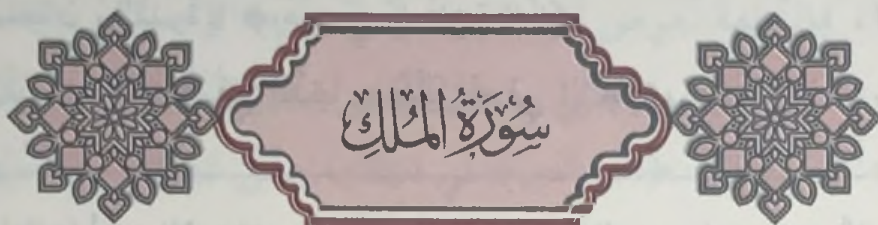 سُورَةُ المُلْكِ